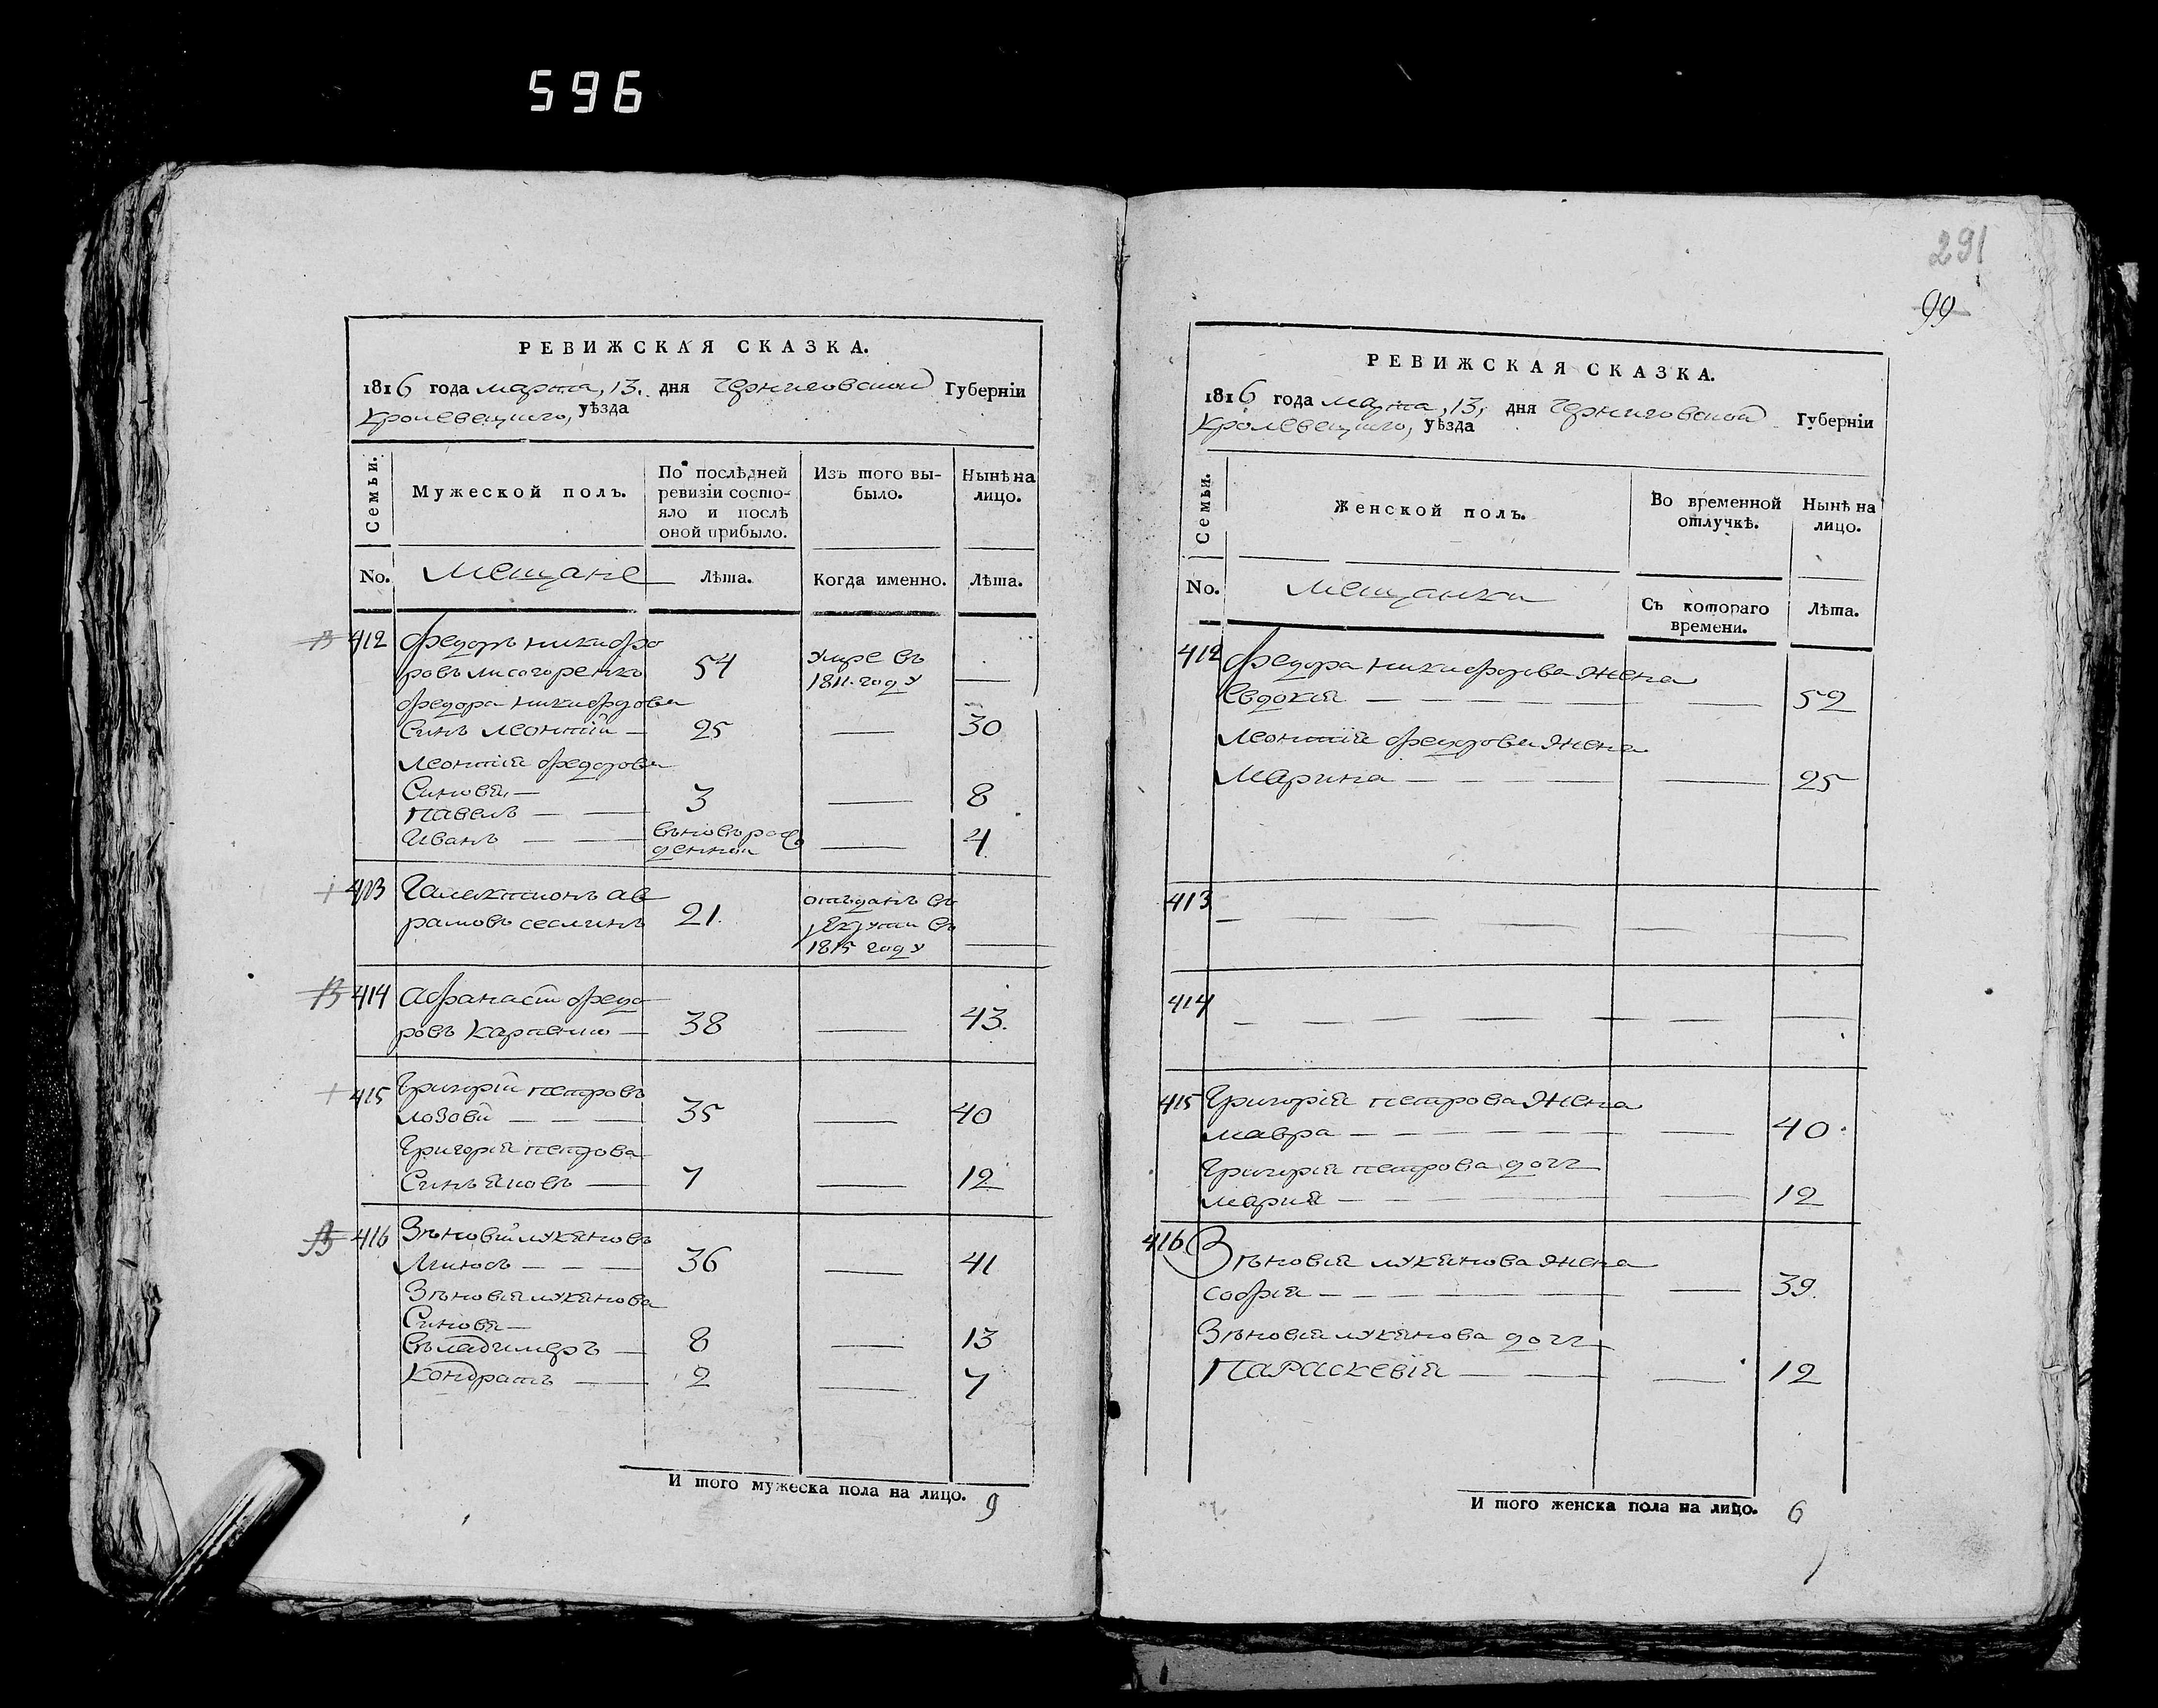 596
РЕВИЖСКАЯ СКАЗКА.
1816 года марта, 13. дня Черниговской Губерніи
Кролевецкого, уѣзда
Семьи.
Мужеской полъ.
По послѣдней ревизіи состояло и послѣ оной прибыло.
Изъ того выбыло.
Нынѣ на лицо.
No.
Мещане
Лѣта.
Когда именно.
Лѣта.
412 Федоръ никифо
ровъ лисогоренко 54 умре въ 1811. году —
Федора никифорова
Синъ леонтій — 25 — 30
Леонтія федорова
Синовя, —
Павелъ — — 3 — 8
Иванъ — — вьновърож денний — 4
413 Галактионъ ав
рамовъ 21. отъданъ въ рекрути въ 1815 году —
414 Афанасій федо
ровъ Карпенко — 38 — 43.
415 Григорій петровъ
лозовй — — — 35 — 40
Григорія петрова
Синъ яковъ — 7 — 12
416 Зѣновій лукяновъ
— — — 36 — 41
Зѣновія лукянова
Синовя —
Въладимеръ — 8 — 13
Кондратъ — 2 — 7
И того мужеска пола на лицо. 9
291
99
РЕВИЖСКАЯ СКАЗКА.
1816 года марта, 13, дня Черниговской Губерніи
Кролевецкого, уѣзда
Семьи.
Женской полъ.
Во временной отлучкѣ.
Нынѣ на лицо.
No.
Мещанки
Съ котораго времени.
Лѣта.
412 Федора никифорова жена
Евдокія — — — — — 52
Леонтія федорова жена
Марина — — — — — 25
413 — — — — — —
414 — — — — — — —
415 Григорія петрова жена
мавра — — — — — — 40.
Григорія петрова дочь
мария — — — — — 12
416 Зѣновія лукянова жена
софія — — — — — — 39.
Зѣновія лукянова дочь
Параскевія — — — 12
И того женска пола на лицо. 6